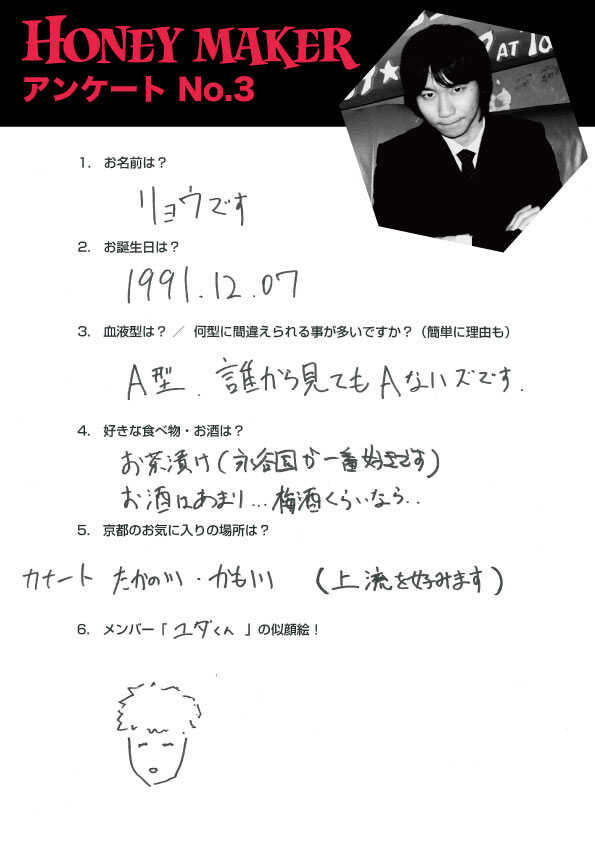 HONEY MAKER
アンケート No.3
AT
1. お名前は？
リョウです
2. お誕生日は？
1991.12.07
3. 血液型は？ ／ 何型に間違えられる事が多いですか？（簡単に理由も）
A型. 誰から見てもAなハズです.
4. 好きな食べ物・お酒は？
お茶漬け(永谷園が一番好きです)
お酒はあまり...梅酒くらいなら..
5. 京都のお気に入りの場所は？
カナート たかの川・かも川 (上流を好みます)
6. メンバー「 ユダくん 」の似顔絵！